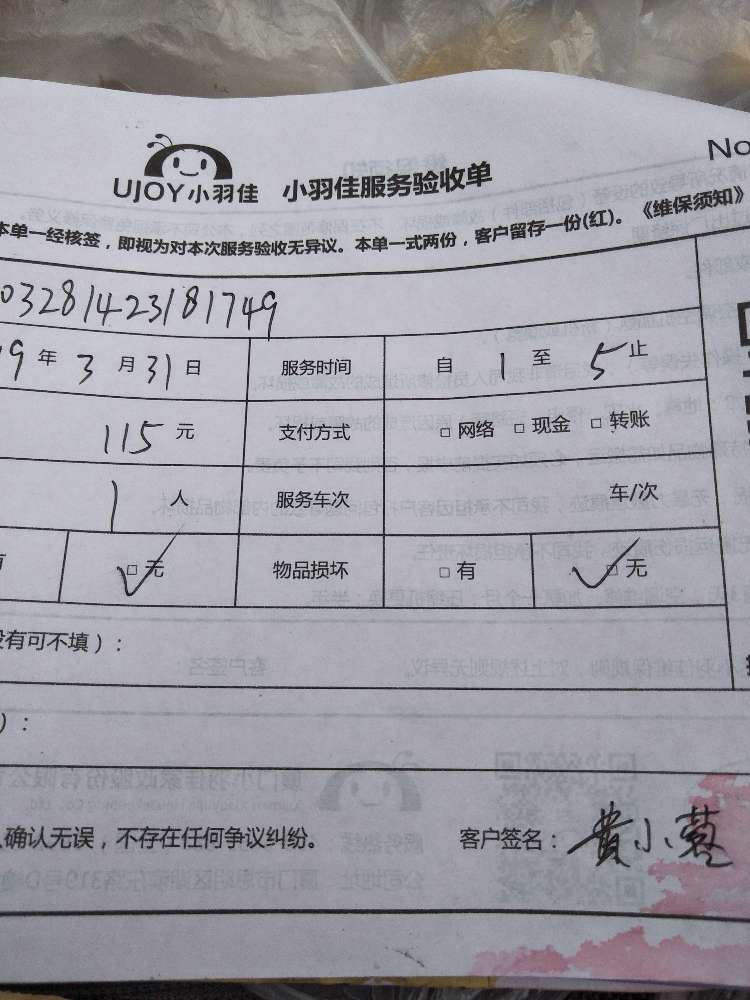 No
UJOY小羽佳 小羽佳服务验收单
本单一经核签，即视为对本次服务验收无异议。本单一式两份，客户留存一份(红)。《维保须知》
03281423181749
9年3月31日 服务时间 自1至5止
115元 支付方式 □网络 □现金 □转账
1人 服务车次 车/次
□无 物品损坏 □有 □无
没有可不填）：
）：
确认无误，不存在任何争议纠纷。 客户签名：黄小